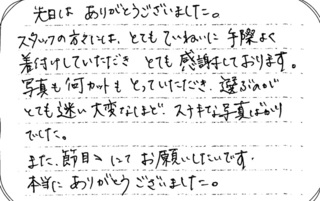 先日は ありがとうございました。
スタッフの方々には、とてもていねいに 手際よく
着付けしていただき とても 感謝しております。
写真も 何カットも とっていただき、選ぶのが
とても迷い 大変なほど、ステキな写真ばかり
でした。
また、節目々にて お願いしたいです。
本当に ありがとう ございました。